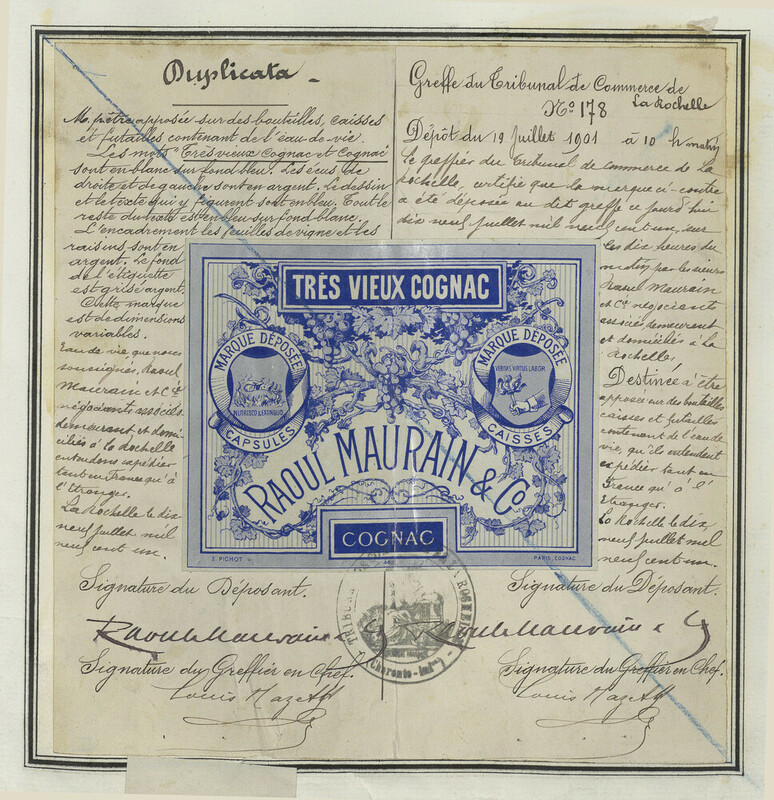 Duplicata
M. pr être apposée sur des bouteilles, caisses
et futailles contenant de l'eau-de-vie.
Les mots "Très vieux Cognac et Cognac
sont en blanc sur fond bleu. Les écus de
droite et de gauche sont en argent. Le dessin
et le texte qui y figurent sont en bleu. Tout le
reste du texte est en bleu sur fond blanc.
L'encadrement les feuilles de vigne et les
raisins sont en
argent. Le fond
de l'étiquette
est grisé argent
Cette marque
est de dimensions
variables.
Eau de vie que nous
soussignés, Raoul
Maurain et Cie
négociants associés
demeurant et domi-
ciliés à la Rochelle
entendons expédier
tant en France qu'à
l'Etranger.
La Rochelle le dix
neuf juillet mil
neuf cent un.
Signature du Déposant.
Raoul Maurain & Cy
Signature du Greffier en Chef.
Louis
Greffe du Tribunal de Commerce de
La Rochelle
No 178
Dépôt du 19 Juillet 1901 à 10 h matin
Le greffier du Tribunal de commerce de La
Rochelle, certifie que la marque ci-contre
a été déposée au dit greffe ce jourd'hui
dix neuf juillet mil neuf cent un, sur
les dix heures du
matin par les sieurs
Raoul Maurain
et Cie négociants
associés, demeurant
et domiciliés à la
Rochelle.
Destinée à être
apposée sur des bouteilles
caisses et futailles
contenant de l'eau de
vie, qu'ils entendent
expédier tant en
France qu'à l'
Etranger.
La Rochelle le dix
neuf juillet mil
neuf cent un.
Signature du Déposant.
Raoul Maurain & Cy
Signature du Greffier en Chef.
Louis
TRÈS VIEUX COGNAC
MARQUE DÉPOSÉE
NUTRISCO & EXTINGUO
CAPSULES
MARQUE DÉPOSÉE
VERITAS VIRTUS LABOR
CAISSES
RAOUL MAURAIN & Co
COGNAC
PARIS, COGNAC
TRIBUNAL
ROCHELLE
(Charente-Infre)